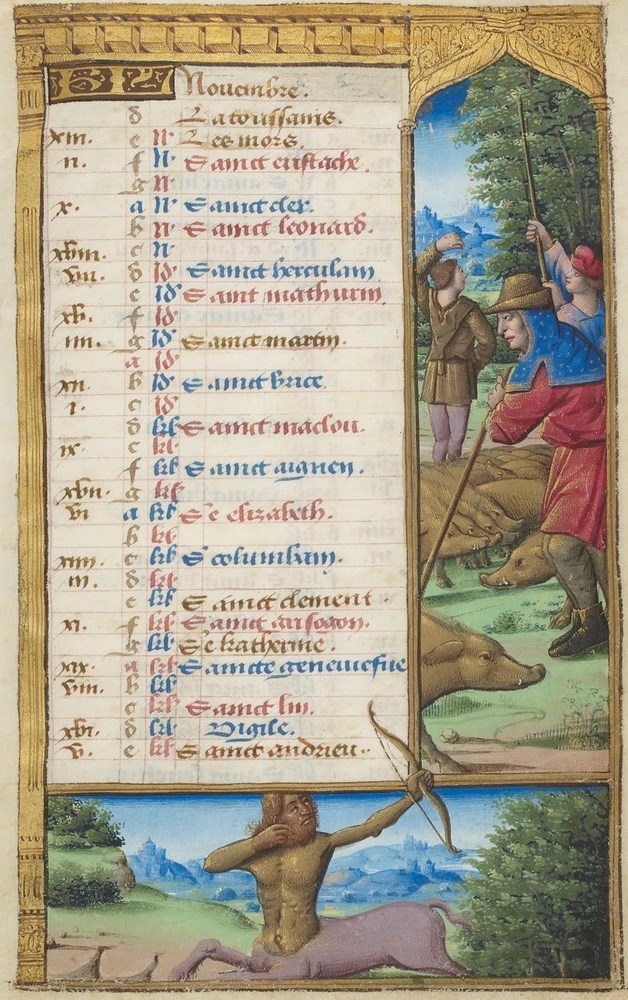 Nouembre.
d La toussains.
xiii. e N Les mors.
ii. f N Sainct eustache.
g N
x. a N Sainct cler.
b N Sainct leonard.
xviii. c N
vii. d Id Sainct herculain
e Id Sainct mathurin
xv. f Id
iiii. g Id Sainct martin.
a Id
xii. b Id Sainct brice.
i. c Id
d kl Sainct maclou.
ix e kl
f kl Sainct aignen.
xvii. g kl
vi a kl Ste elizabeth.
b kl
xiiii. c kl S columbain.
iii. d kl
e kl Sainct clement
xi. f kl Sainct grisogon.
g kl Ste katherine.
xix. a kl Saincte geneuiefue
viii. b kl
c kl Sainct lin.
xvi. d kl Vigile.
v. e kl Sainct andrieu.